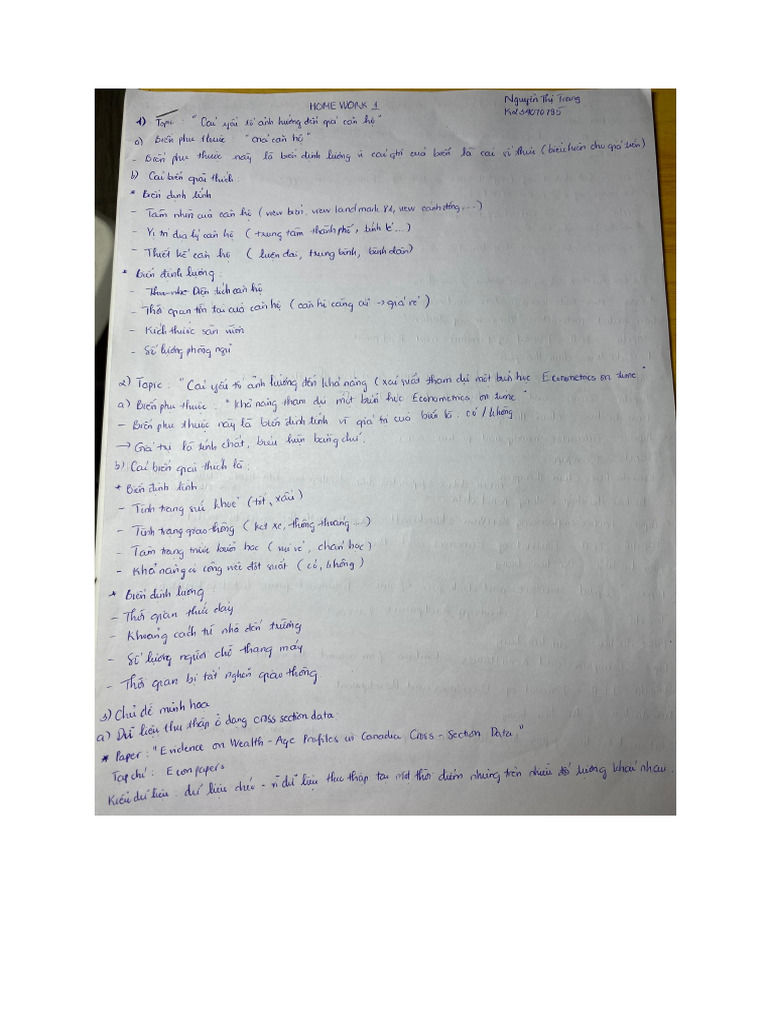 HOME WORK 1
Nguyễn Thị Trang
1) Topic : "Các yếu tố ảnh hưởng đến giá căn hộ"
a) Biến phụ thuộc : "Giá căn hộ"
- Biến phụ thuộc này là biến định lượng vì các giá trị của biến là các số thực (biểu hiện cho giá tiền)
b) Các biến giải thích :
* Biến định tính
- Tầm nhìn của căn hộ (view biển, view landmark 81, view cánh đồng, ...)
- Vị trí địa lý căn hộ (trung tâm thành phố, tỉnh lẻ...)
- Thiết kế căn hộ (luên đai, trung bình, bình dân)
* Biến định lượng :
- Diện tích căn hộ
- Thời gian tồn tại của căn hộ (căn hộ càng cũ → giá rẻ)
- Kích thước sân vườn
- Số lượng phòng ngủ
2) Topic : "Các yếu tố ảnh hưởng đến khả năng (xác suất tham dự một buổi học Econometrics on time"
a) Biến phụ thuộc : "Khả năng tham dự một buổi học Econometrics on time"
- Biến phụ thuộc này là biến định tính vì giá trị của biến là : có / không
→ Giá trị là tính chất, biểu hiện bằng chữ.
b) Các biến giải thích là :
* Biến định tính
- Tình trạng sức khoẻ (tốt, xấu)
- Tình trạng giao thông (kẹt xe, thông thoáng ...)
- Tâm trạng trước buổi học (vui vẻ, chán học)
- Khả năng có công việc đột suất (có, không)
* Biến định lượng
- Thời gian thức dậy
- Khoảng cách từ nhà đến trường
- Số lượng người chờ thang máy
- Thời gian bị tắt nghẽn giao thông
3) Chủ đề minh hoạ
a) Dữ liệu thu thập ở dạng cross section data :
* Paper : "Evidence on Wealth - Age Profiles in Canadia Cross - Section Data."
Tạp chí : Econpapers
Kiểu dữ liệu : dữ liệu chéo - vì dữ liệu thu thập tại một thời điểm nhưng trên nhiều đối tượng khác nhau.